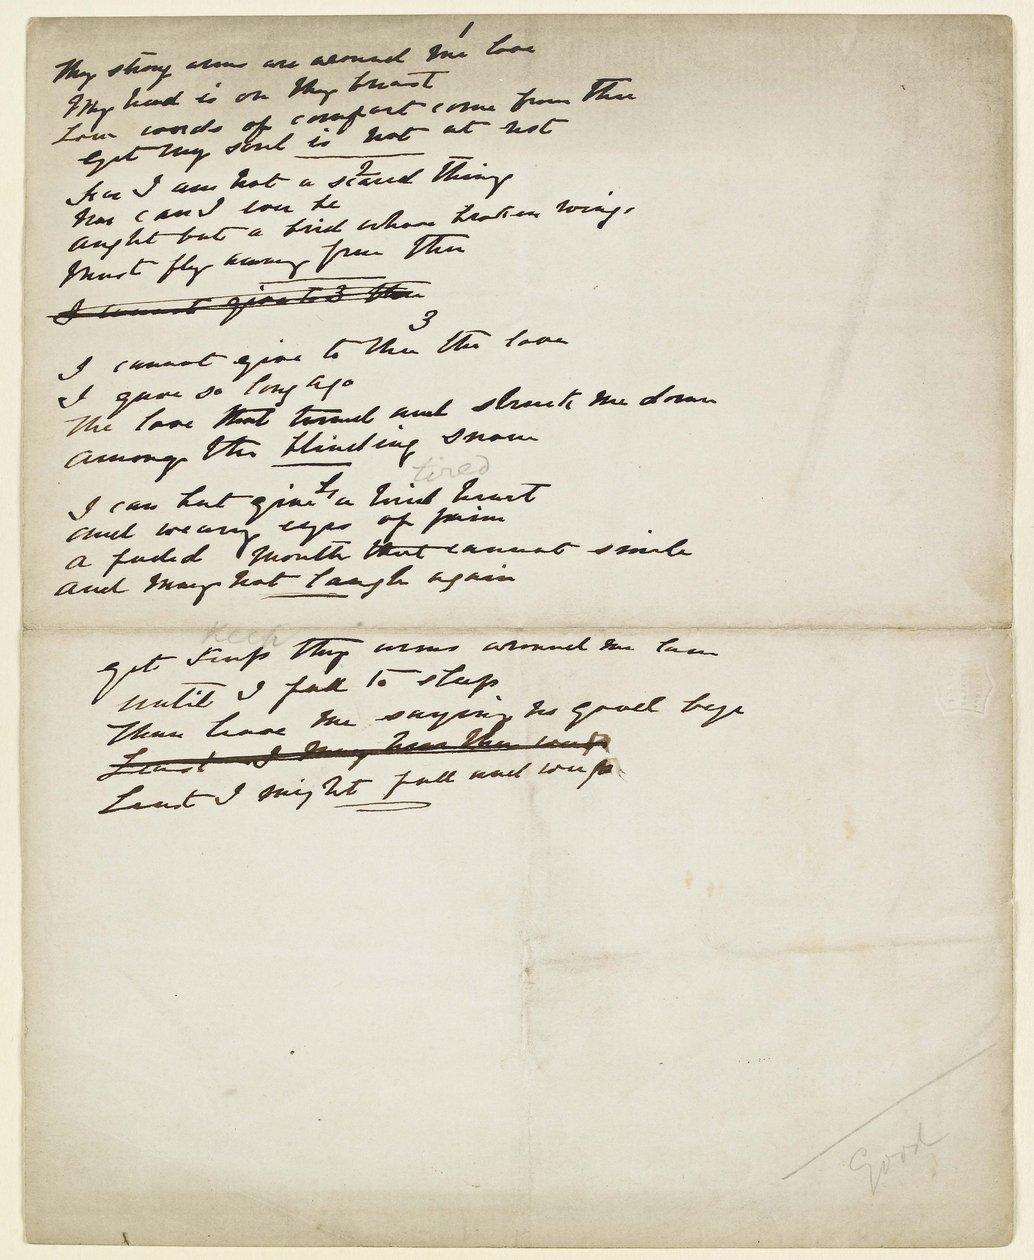 1
Thy strong arms are around me love
My head is on thy breast
Low words of comfort come from thee
Yet my soul is not at rest
2
For I am not a scared thing
Nor can I ever be
Aught but a bird whose broken wing
Must fly away from thee
I cannot give to 3 thee
3
I cannot give to thee the love
I gave so long ago
The love that turned and struck me down
Among the blinding snow
tired
4
I can but give a tired heart
And weary eyes of pain
A faded mouth that cannot smile
And may not laugh again
keep
Yet keep thy arms around me love
Until I fall to sleep
Then leave me saying no good bye
Least I may hear thee weep
Least I might fall and weep.
Good